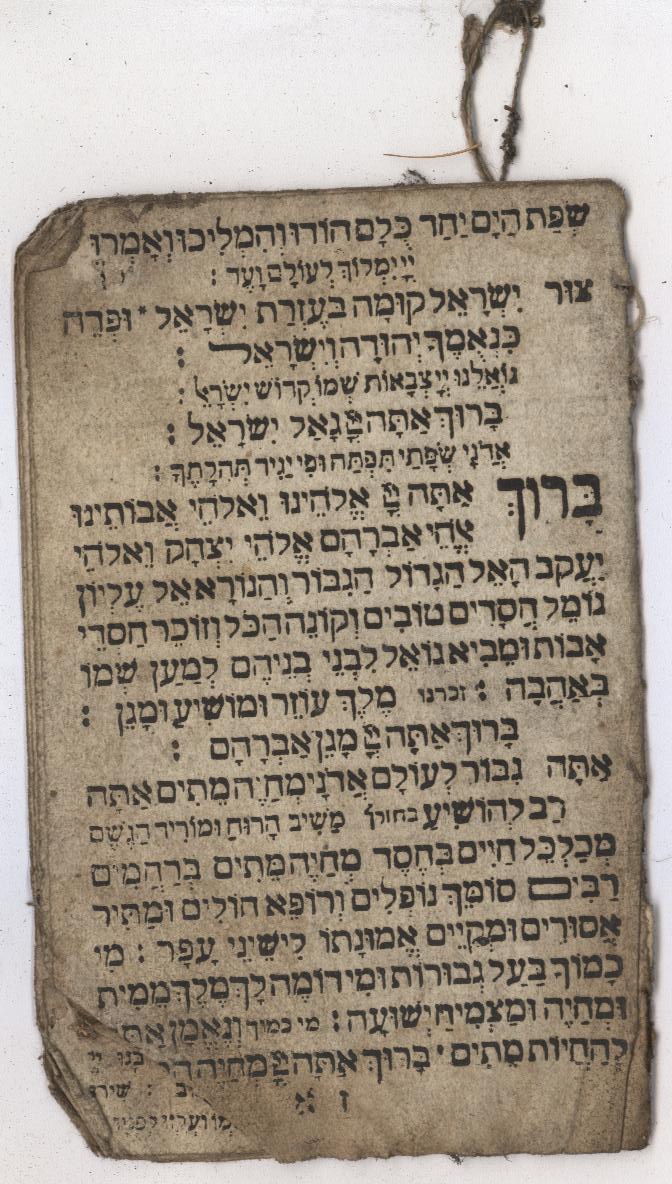 שְׂפַת הַיָּם יַחַד כֻּלָּם הוֹדוּ וְהִמְלִיכוּ וְאָמְרוּ
יְיָ יִמְלוֹךְ לְעוֹלָם וָעֶד :
צוּר יִשְׂרָאֵל קוּמָה בְּעֶזְרַת יִשְׂרָאֵל * וּפְדֵה
כִנְאֻמֶךָ יְהוּדָה וְיִשְׂרָאֵל :
גּוֹאֲלֵנוּ יְיָ צְבָאוֹת שְׁמוֹ קְדוֹשׁ יִשְׂרָאֵל :
בָּרוּךְ אַתָּה יְיָ גָּאַל יִשְׂרָאֵל :
אֲדֹנָי שְׂפָתַי תִּפְתָּח וּפִי יַגִּיד תְּהִלָּתֶךָ :
בָּרוּךְ אַתָּה יְיָ אֱלֹהֵינוּ וֵאלֹהֵי אֲבוֹתֵינוּ
אֱלֹהֵי אַבְרָהָם אֱלֹהֵי יִצְחָק וֵאלֹהֵי
יַעֲקֹב הָאֵל הַגָּדוֹל הַגִּבּוֹר וְהַנּוֹרָא אֵל עֶלְיוֹן
גּוֹמֵל חֲסָדִים טוֹבִים וְקוֹנֵה הַכֹּל וְזוֹכֵר חַסְדֵי
אָבוֹת וּמֵבִיא גוֹאֵל לִבְנֵי בְנֵיהֶם לְמַעַן שְׁמוֹ
בְּאַהֲבָה : זכרנו מֶלֶךְ עוֹזֵר וּמוֹשִׁיעַ וּמָגֵן :
בָּרוּךְ אַתָּה יְיָ מָגֵן אַבְרָהָם :
אַתָּה גִּבּוֹר לְעוֹלָם אֲדֹנָי מְחַיֵּה מֵתִים אַתָּה
רַב לְהוֹשִׁיעַ בחורף מַשִּׁיב הָרוּחַ וּמוֹרִיד הַגֶּשֶׁם
מְכַלְכֵּל חַיִּים בְּחֶסֶד מְחַיֵּה מֵתִים בְּרַחֲמִים
רַבִּים סוֹמֵךְ נוֹפְלִים וְרוֹפֵא חוֹלִים וּמַתִּיר
אֲסוּרִים וּמְקַיֵּים אֱמוּנָתוֹ לִישֵׁינֵי עָפָר : מִי
כָמוֹךָ בַּעַל גְּבוּרוֹת וּמִי דוֹמֶה לָּךְ מֶלֶךְ מֵמִית
וּמְחַיֶּה וּמַצְמִיחַ יְשׁוּעָה : מי כמוך וְנֶאֱמָן אַתָּה
לְהַחֲיוֹת מֵתִים * בָּרוּךְ אַתָּה יְיָ מְחַיֵּה
ז א